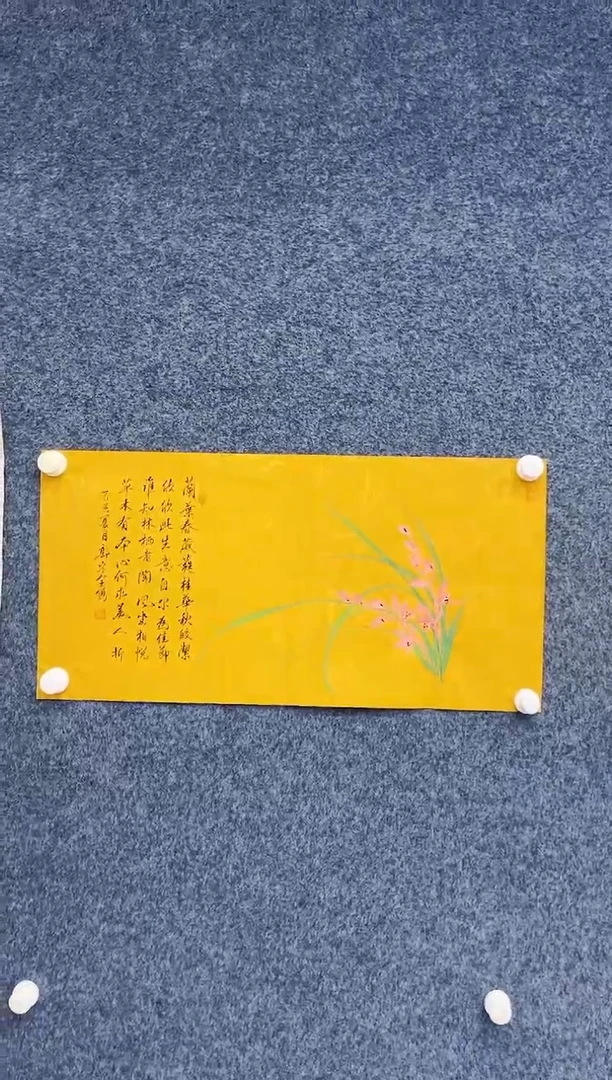 蘭葉春葳蕤桂華秋皎潔
欣欣此生意自尔為佳節
誰知林栖者聞風坐相悅
草木有本心何求美人折
夏月